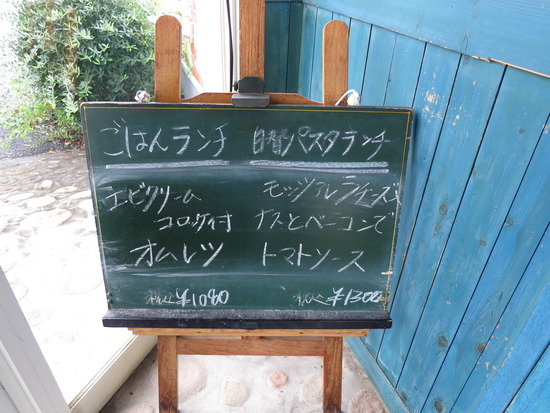 ごはんランチ
エビクリーム
コロッケ付
オムレツ
税込 ¥1080
日替パスタランチ
モッツァレラチーズと
ナスとベーコンで
トマトソース
税込 ¥1300